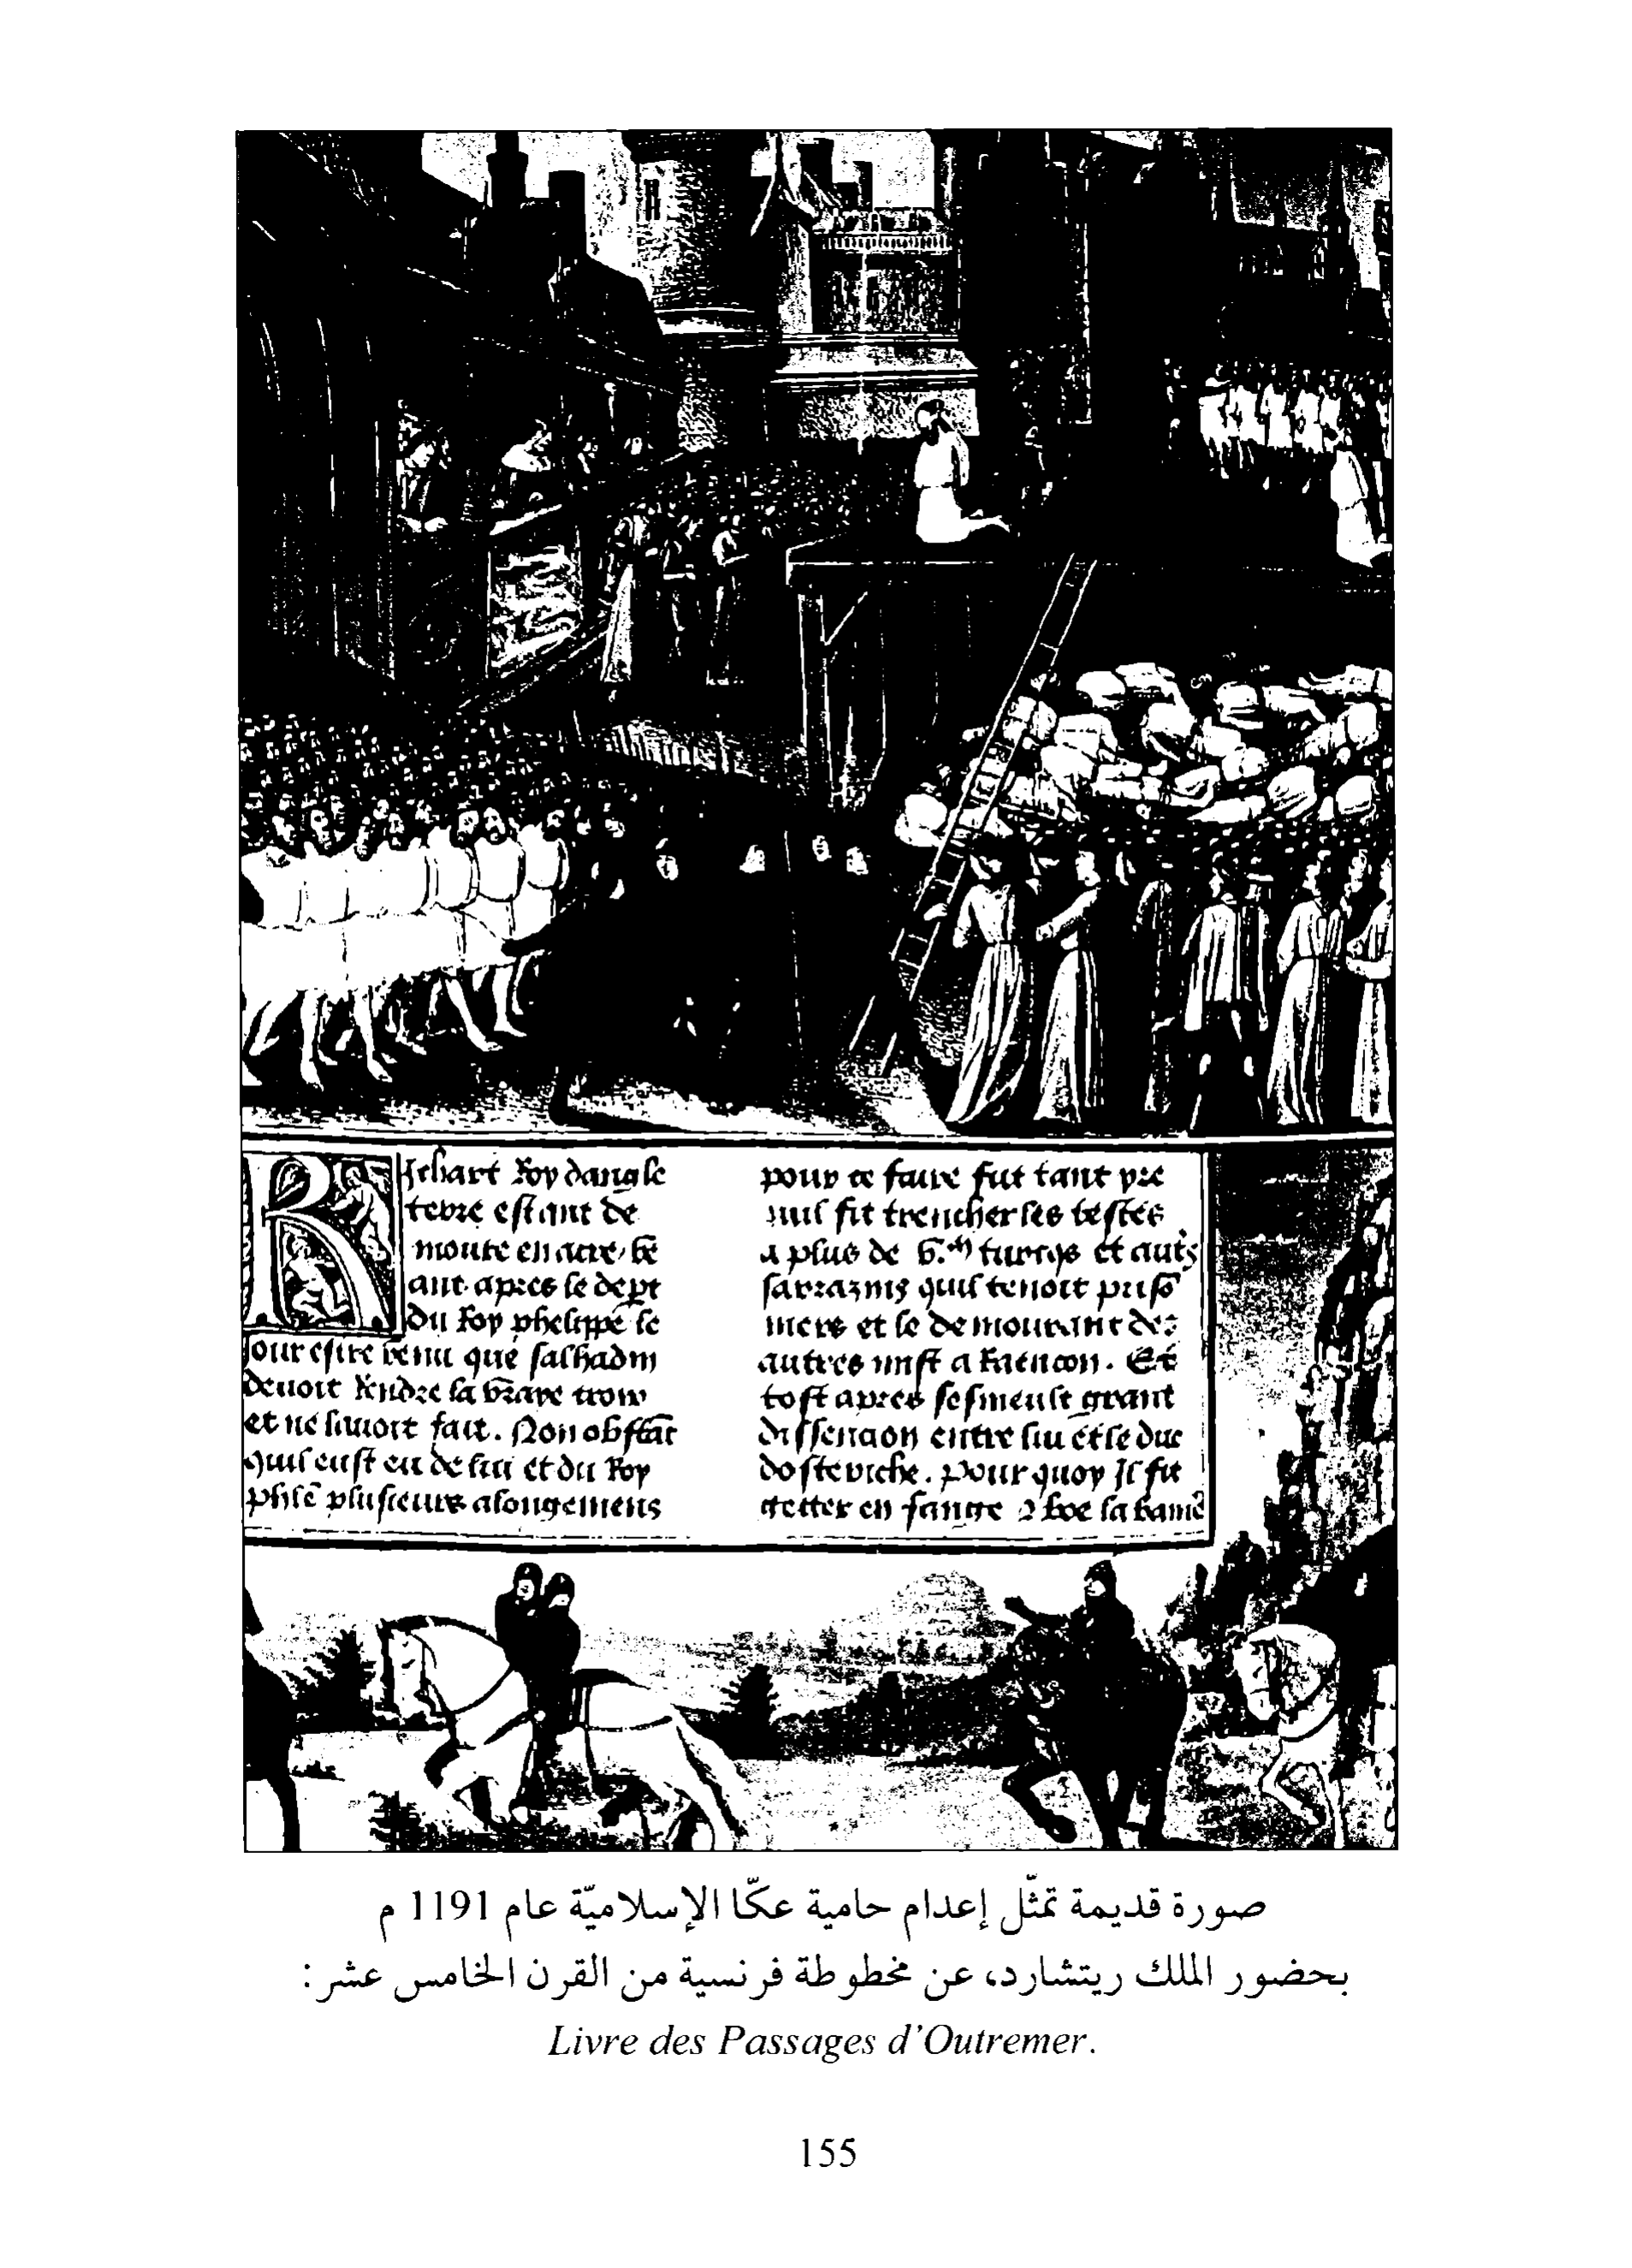 Richart Roy dangle
terre estant de
moure en acre, be
ant apres le dept
du Roy phelippe le
Jour estre venu que salhadin
devoit Rendre la vraye croix
et ne lavoit fait. Non obstat
quil eust eu de lui et du Roy
phle plusieurs alongemens
pour ce faire fut tant yre
quil fit trencher les testes
a plus de v.m turcqs et aut's
sarrazins quil tenoit priso
niers et le demourant des
autres mist a Raencon. Et
tost apres sesmeult grant
dissencion entre lui et le duc
dosteriche. pour quoy Il fit
getter en fange & boe sa banie
صورة قديمة تمثّل إعدام حامية عكّا الإسلاميّة عام 1191 م
بحضور الملك ريتشارد، عن مخطوطة فرنسية من القرن الخامس عشر:
Livre des Passages d'Outremer.
155